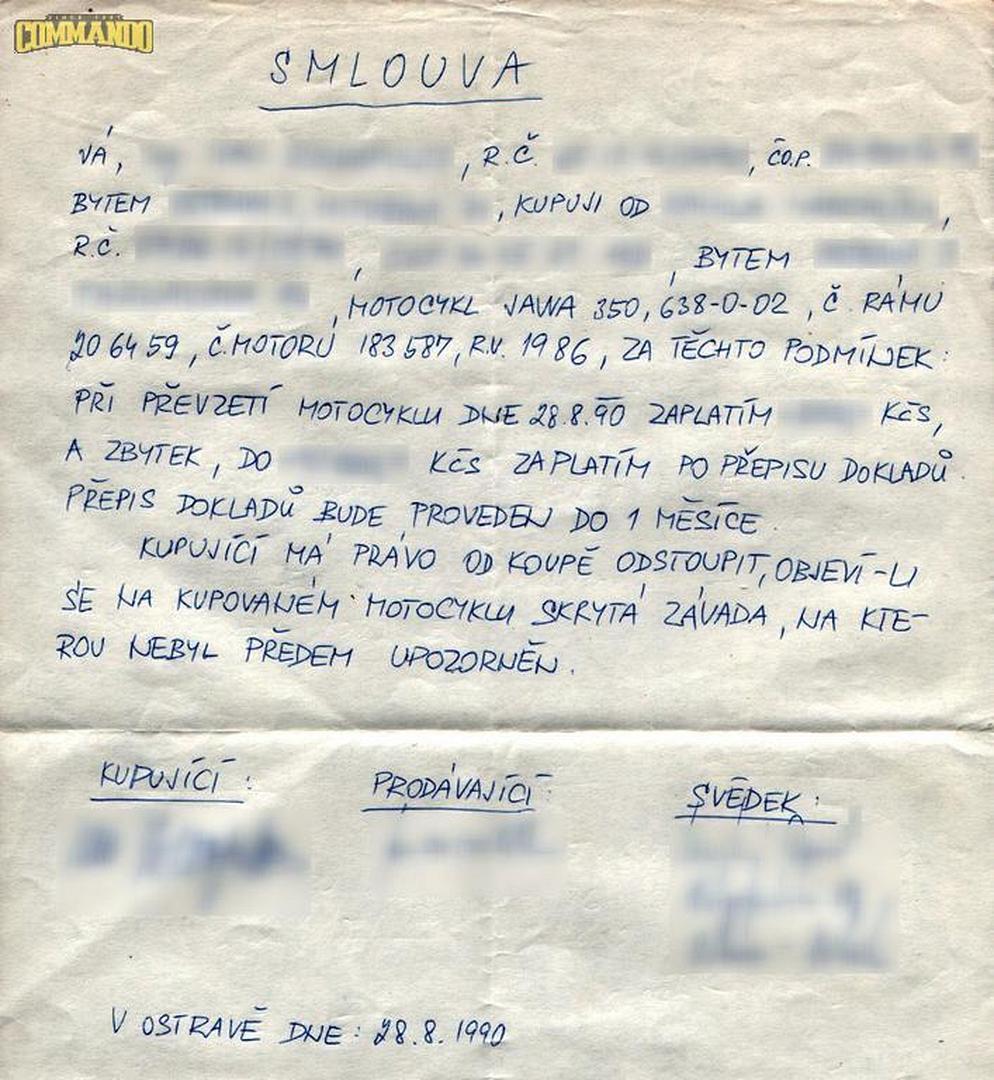 SINCE 1991
COMMANDO
SMLOUVA
JÁ, , R.Č. , Č.O.P.
BYTEM , KUPUJI OD ,
R.Č. , , BYTEM
, MOTOCYKL JAWA 350, 638-0-02, Č. RÁMU
206459, Č. MOTORU 183587, R.V. 1986, ZA TĚCHTO PODMÍNEK:
PŘI PŘEVZETÍ MOTOCYKLU DNE 28.8.90 ZAPLATÍM KČS,
A ZBYTEK, DO KČS ZAPLATÍM PO PŘEPISU DOKLADŮ.
PŘEPIS DOKLADŮ BUDE PROVEDEN DO 1 MĚSÍCE.
KUPUJÍCÍ MÁ PRÁVO OD KOUPĚ ODSTOUPIT, OBJEVÍ-LI
SE NA KUPOVANÉM MOTOCYKLU SKRYTÁ ZÁVADA, NA KTE-
ROU NEBYL PŘEDEM UPOZORNĚN.
KUPUJÍCÍ: PRODÁVAJÍCÍ: SVĚDEK:
V OSTRAVĚ DNE: 28.8.1990